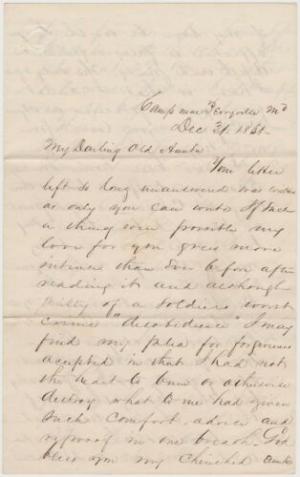 Camp near Perryville Md
Dec 31. 1861.
My Darling Old Aunta
Your letter
left so long unanswered was
as only you can write If such
a thing were possible my
love for you grew more
intense than ever before after
reading it and although
guilty of a soldiers worst
crime "disobedience" I may
find my plea for forgiveness
accepted in that I had not
the heart to burn or otherwise
destroy what to me had given
such comfort, advice and
reproof in one breath. God
bless you my cherished